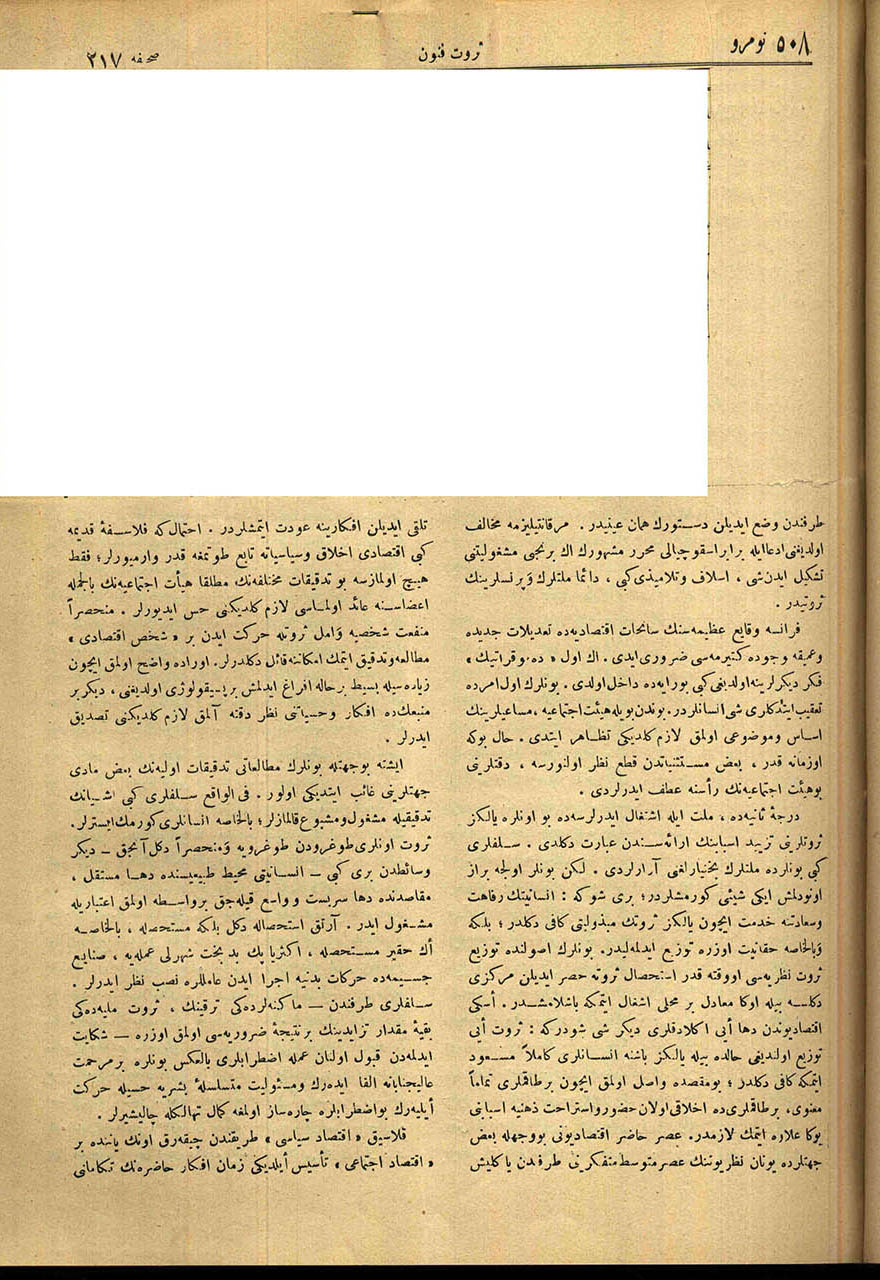 نومرو ٥٠٨
ثروت فنون
صحفه ٢١٧
طرفندن وضع ايديلن دستورك همان عينيدر . مرقانتيليزمه مخالف
اولديغنى ادعا ايله برابر اسقوچيالى محرر مشهورك اك برنجى مشغوليتنى
تشكيل ايدن شى ، اسلاف وتلاميذى كبى ، دائما ملتلرك وپرنسلرينك
ثروتيدر .
فرانسه وقايع عظيمه سنك سانحات اقتصاديه ده تعديلات جديده
وعميقه وجوده كتيرمه سى ضرورى ايدى . اك اول « ده موقراتيك »
فكر ديكرلرينه اولديغى كبى بورايه ده داخل اولدى . بونلرك اول امرده
تعقيب ايتدكارى شى انسانلردر . بوندن بويله هيئت اجتماعيه ، مساعيلرينك
اساس وموضوعى اولمق لازم كلديكى تظاهر ايتدى . حال بوكه
اوزمانه قدر ، بعض مستثنياتدن قطع نظر اولنورسه ، دقتلرينى
بوهيئت اجتماعيه نك رأسنه عطف ايدرلردى .
درجهٔ ثانيه ده ، ملت ايله اشتغال ايدرلرسه ده بو اونلره يالكز
ثروتلرينى تزييد اسبابنك ارائه سندن عبارت دكلدى . سلفلرى
كبى بونلرده ملتلرك بختيارلغنى آرارلردى . لكن بونلر اولجه براز
اونودلمش ايكى شيئى كورمشلردر؛ برى شوكه : انسانيتك رفاهت
وسعادتنه خدمت ايچون يالكز ثروتك مبذوليتى كافى دكلدر ؛ بلكه
وبالخاصه حقانيت اوزره توزيع ايدلمه ليدر. بونلرك اصولنده توزيع
ثروت نظريه سى اووقته قدر استحصال ثروته حصر ايديلن مركزى
دكلسه بيله اوكا معادل بر محلى اشغال ايتمكه باشلامشدر . أسكى
اقتصاديوندن دها أيى اكلادقلرى ديكر شى شودركه : ثروت أيى
توزيع اولنديغى حالده بيله يالكز باشنه انسانلرى كاملاً مسعود
ايتمكه كافى دكلدر ؛ بومقصده واصل اولمق ايچون برطاقملرى تماماً
معنوى، برطاقملرى ده اخلاقى اولان حضور واستراحت ذهنيه اسبابنى
يوكا علاوه ايتمك لازمدر. عصر حاضر اقتصاديونى بووجهله بعض
جهتلرده يونان نظريوننك عصر متوسط متفكرينى طرفدن ياكليش
تلقى ايديلن افكارينه عودت ايتمشلردر . احتمال كه فلاسفهٔ قديمه
كبى اقتصادى اخلاق وسياسياته تابع طوتمغه قدر وارميورلر؛ فقط
هيچ اولمازسه بو تدقيقات مختلفه نك مطلقا هيأت اجتماعيه نك بالجمله
اعضاسنه عائد اولماسى لازم كلديكنى حس ايديورلر . منحصراً
منفعت شخصيه وَامل ثروتله حركت ايدن بر « شخص اقتصادى »
مطالعه وتدقيق ايتمك امكاننه قائل دكلدرلر. اوراده واضح اولمق ايچون
زياده سيله بسيط برحاله افراغ ايدلمش برپسيقولوژى اولديغنى ، ديكر بر
منبعك ده افكار وحسياتنى نظر دقته آلمق لازم كلديكنى تصديق
ايدرلر .
ايشته بوجهتله بونلرك مطالعاتى تدقيقات اوليه نك بعض مادى
جهتلرينى غائب ايتديكى اولور . فى الواقع سلفلرى كبى اشيانك
تدقيقيله مشغول ومشبوع قالمازلر؛ بالخاصه انسانلرى كورمك ايسترلر.
ثروت اونلرى طوغرودن طوغرويه وَمنحصراً دكل آنجق – ديكر
وسائطدن برى كبى – انسانيتى محيط طبيعيسنده دها مستقل ،
مقاصدنده دها سربست وواسع قيله جق برواسطه اولمق اعتباريله
مشغول ايدر. آرتق استحصاله دكل بلكه مستحصله ، بالخاصه
أك حقير مستحصله ، اكثريا پك بدبخت شهرلى عمله يه ، صنايع
جسيمه ده حركات بدنيه اجرا ايدن عامللره نصب نظر ايدرلر .
سلفلرى طرفندن – ماكنه لرده كى ترقينك ، ثروت مليه ده كى
بقيهٔ مقدار تزايدينك برنتيجهٔ ضروريه سى اولمق اوزره – شكايت
ايدلمه دن قبول اولنان عمله اضطرابلرى بالعكس بونلره برمرحمت
عاليجنابانه القا ايده رك ومسئوليت متسلسلهٔ بشريه حسيله حركت
أيليه رك بو اضطرابلره چاره ساز اولمغه كمال تهالكله چاليشيرلر .
قلاسيق « اقتصاد سياسى » طريقندن چيقه رق اونك ياننده بر
« اقتصاد اجتماعى » تأسيس أيلديكى زمان افكار حاضره نك تكاماتى